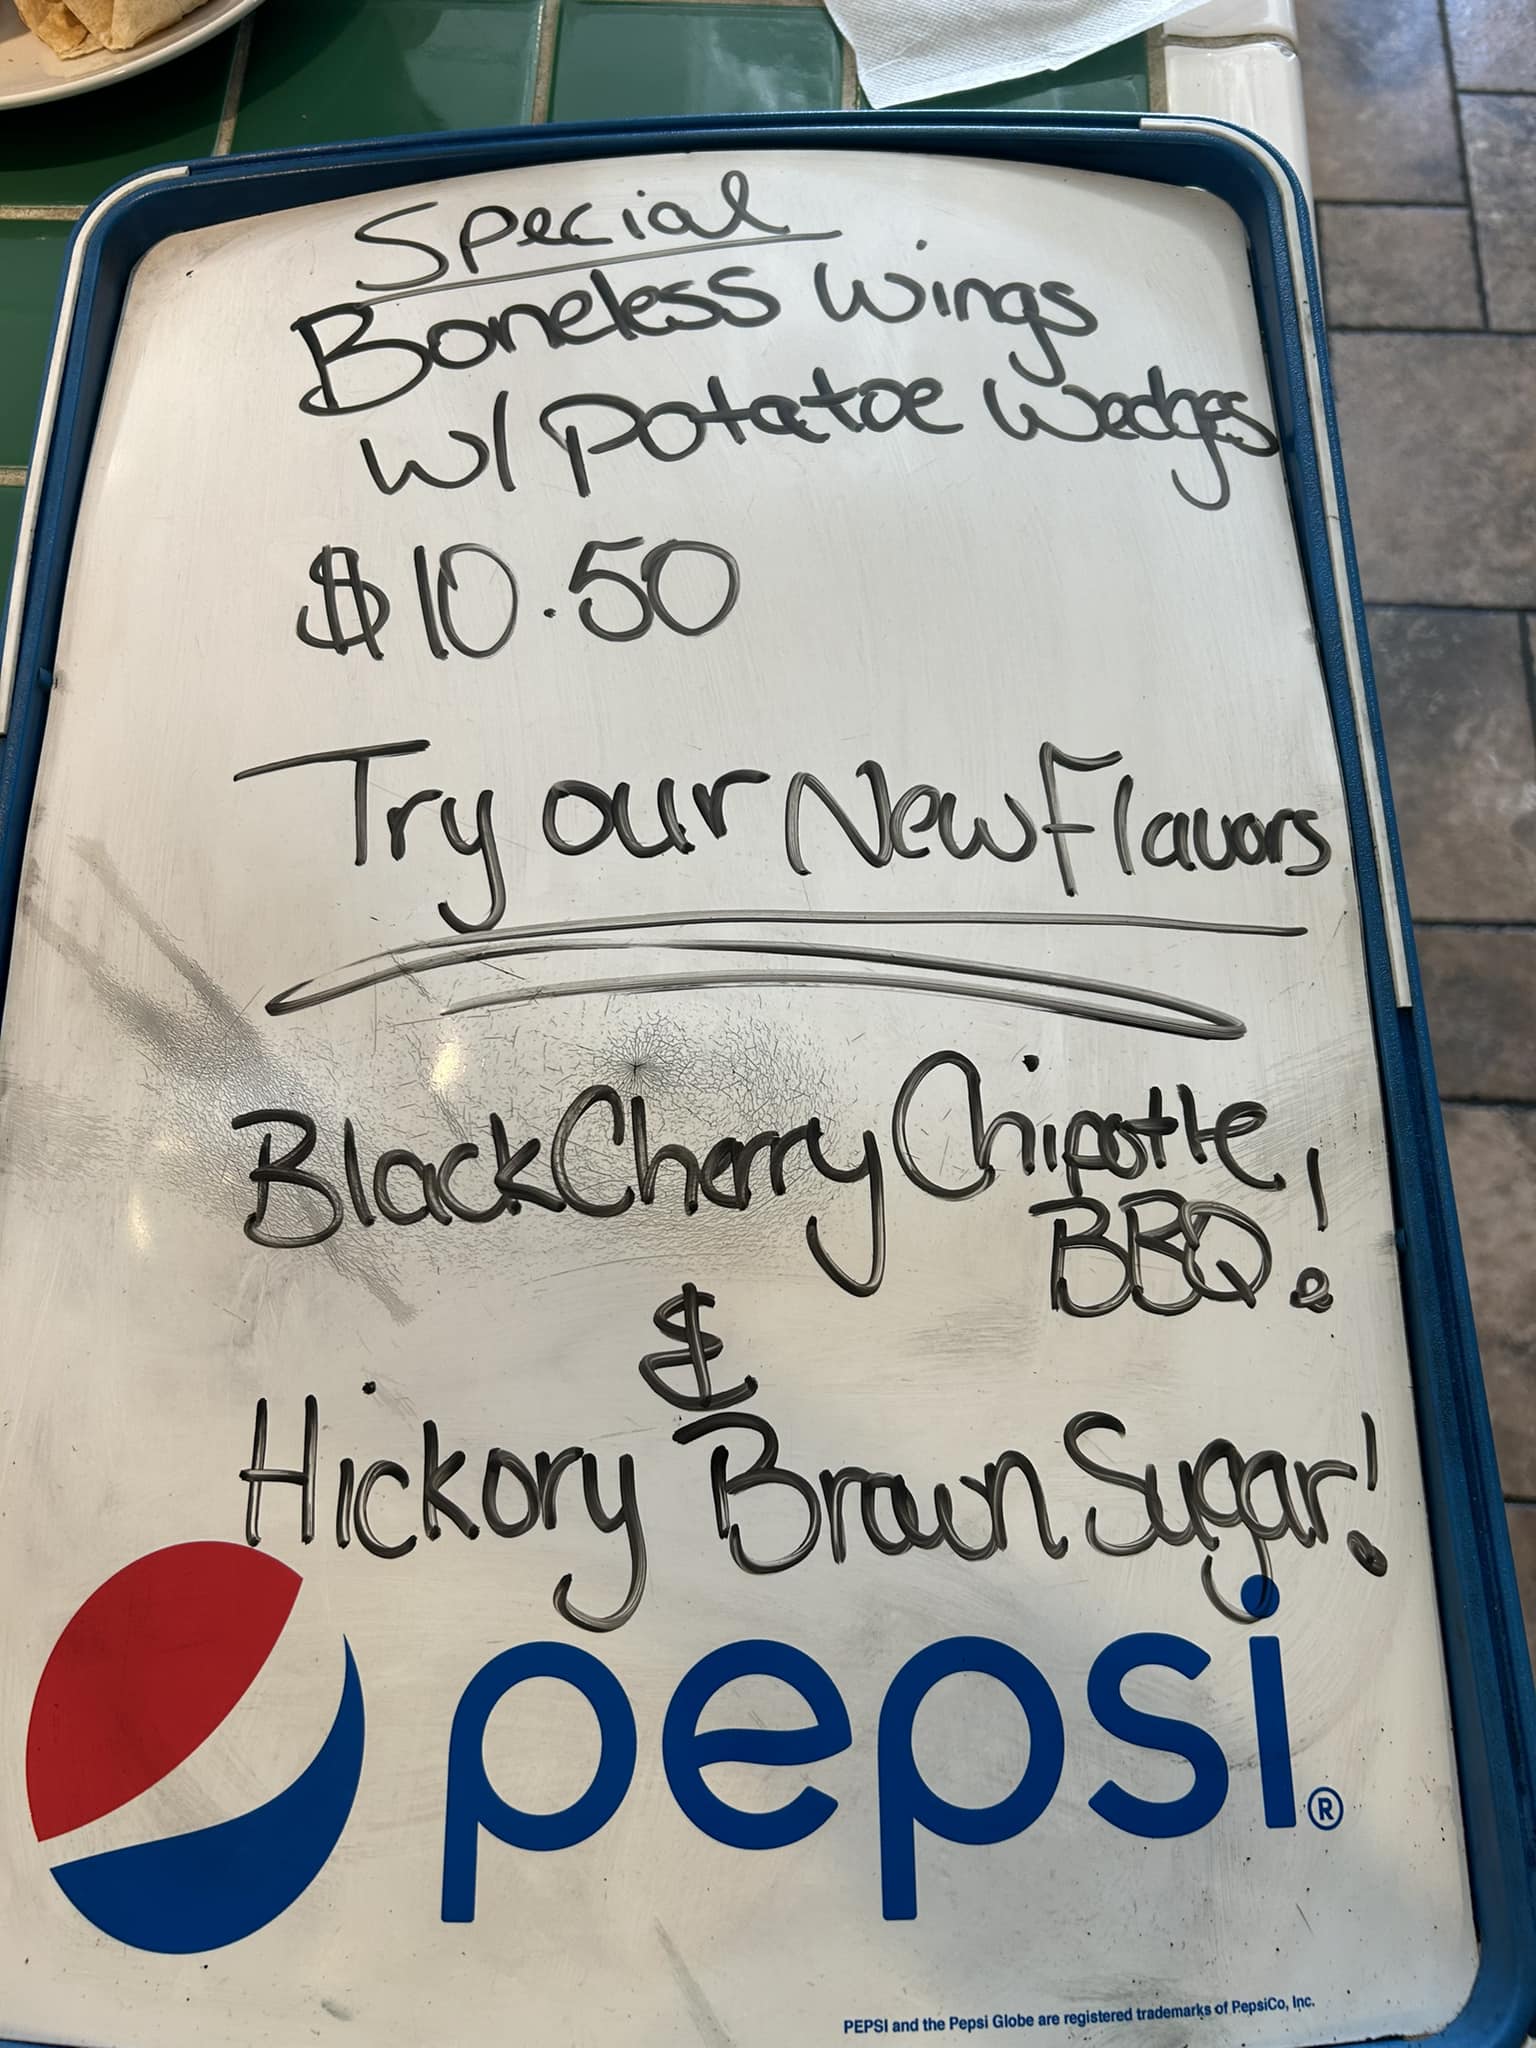 Special
Boneless Wings
w/ Potatoe Wedges
$10.50
Try our New Flavors
Black Cherry Chipotle
BBQ!
&
Hickory Brown Sugar!
pepsi®
PEPSI and the Pepsi Globe are registered trademarks of PepsiCo, Inc.